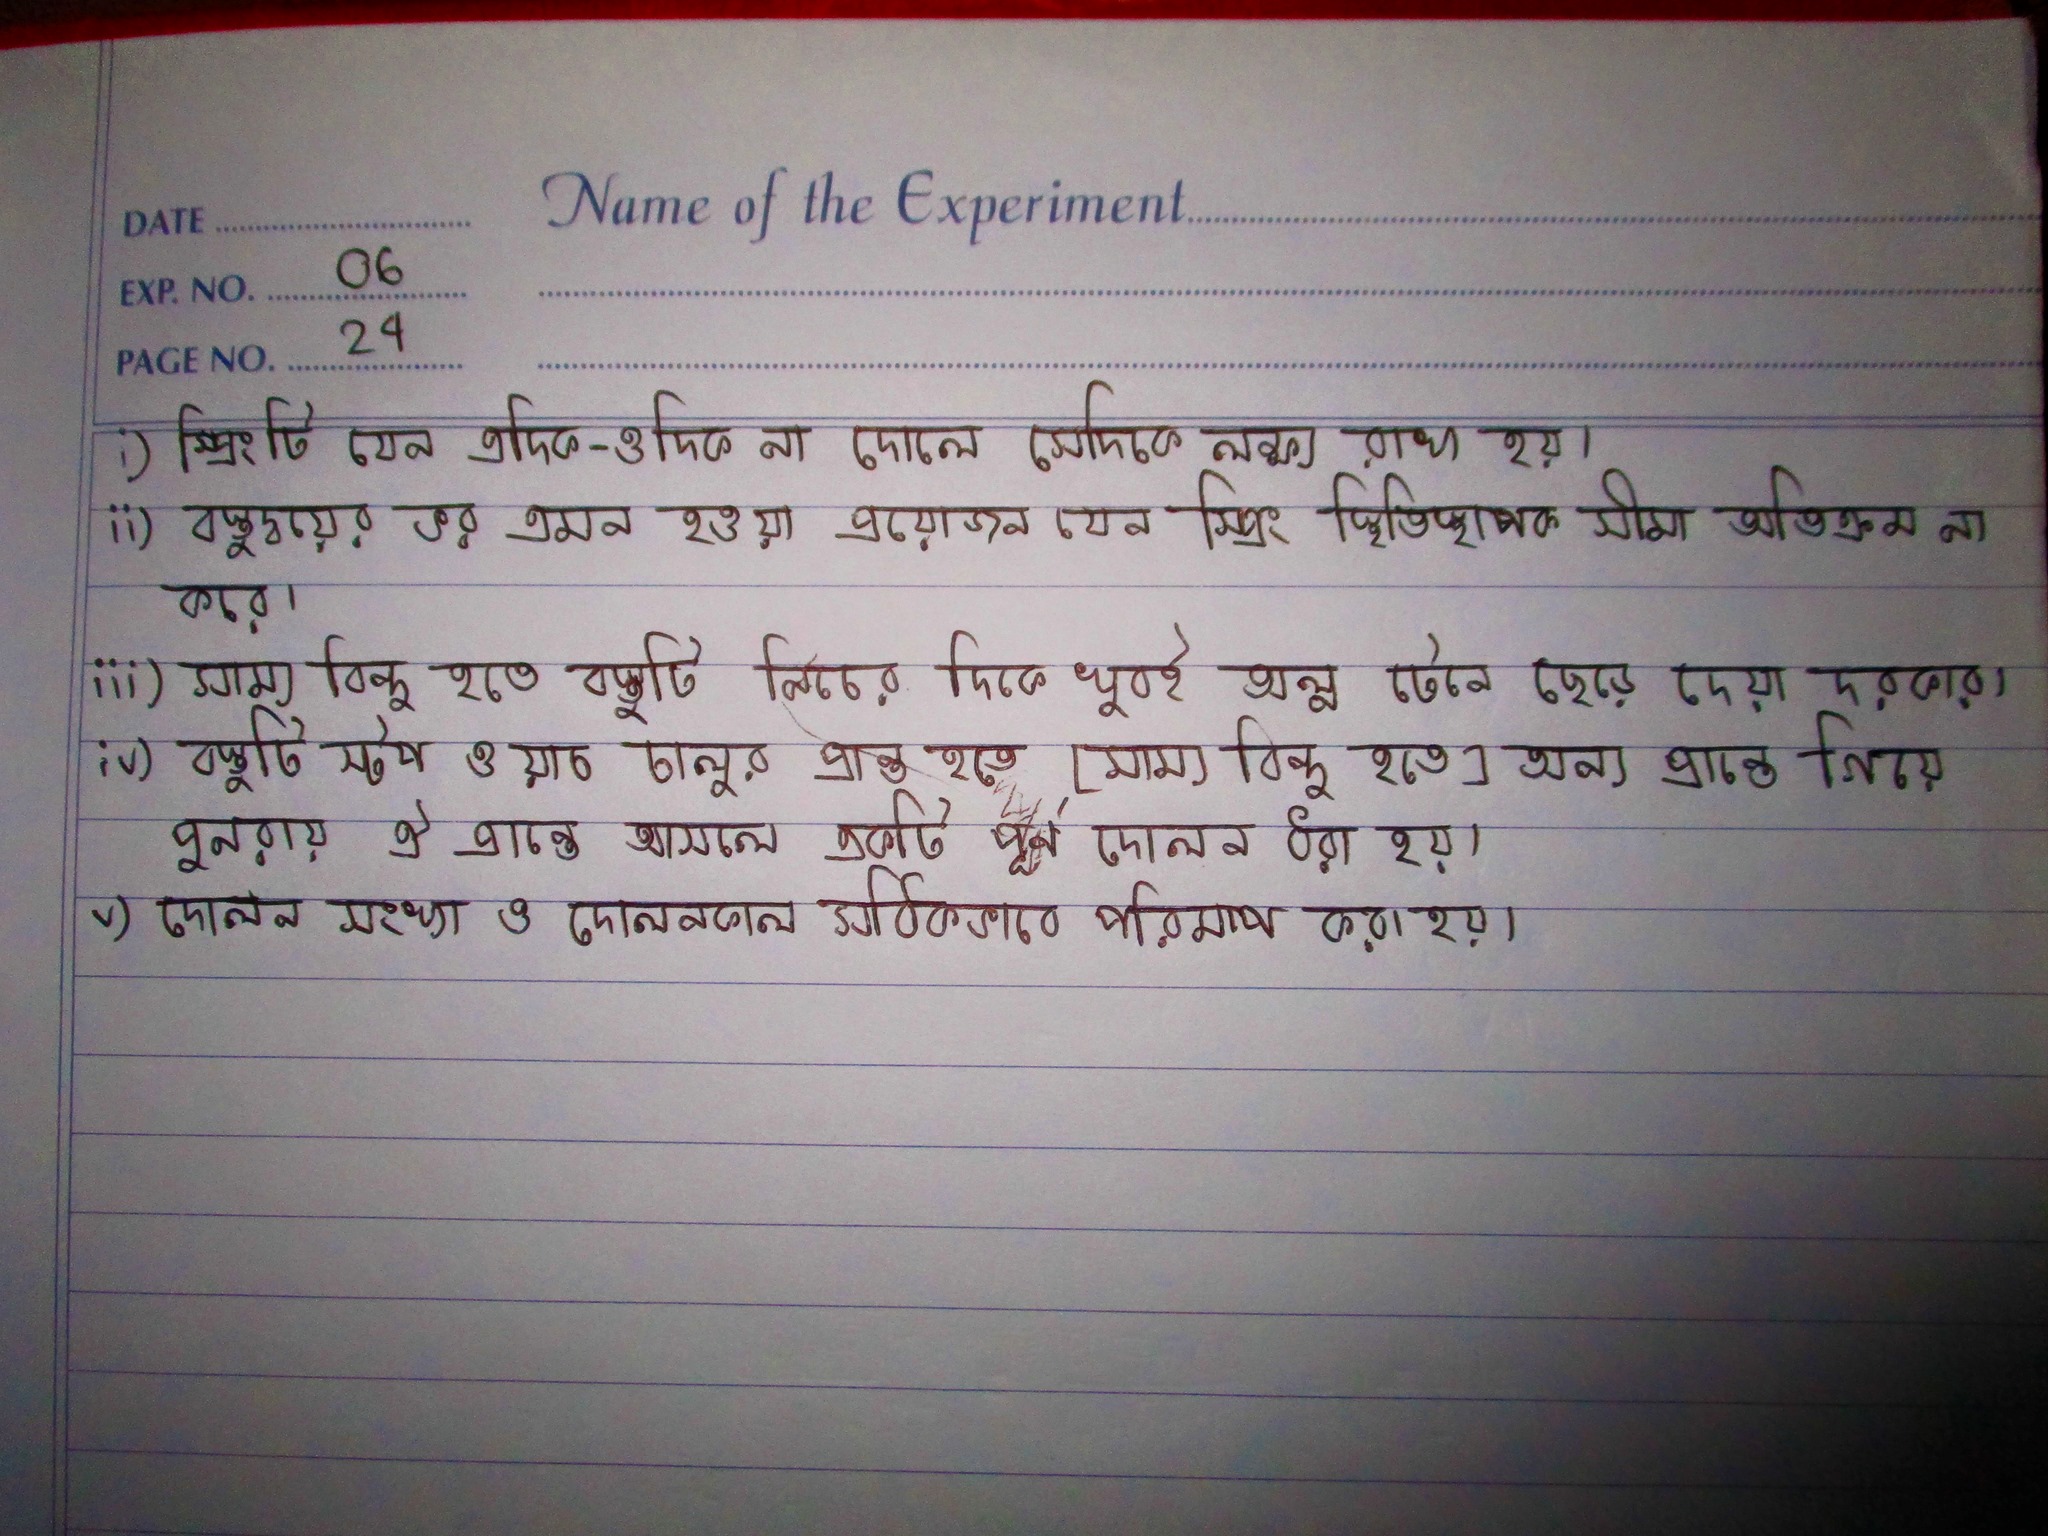 Name of the Experiment
DATE
EXP. NO. 06
PAGE NO. 24
i) স্প্রিংটি যেন এদিক-ওদিক না দোলে সেদিকে লক্ষ্য রাখা হয়।
ii) বস্তুদ্বয়ের ভর এমন হওয়া প্রয়োজন যেন স্প্রিং স্থিতিস্থাপক সীমা অতিক্রম না
করে।
iii) সাম্য বিন্দু হতে বস্তুটি নিচের দিকে খুবই অল্প টেনে ছেড়ে দেয়া দরকার।
iv) বস্তুটি স্টপ ওয়াচ চালুর প্রান্ত হতে [সাম্য বিন্দু হতে] অন্য প্রান্তে গিয়ে
পুনরায় ঐ প্রান্তে আসলে একটি পূর্ন দোলন ধরা হয়।
v) দোলন সংখ্যা ও দোলনকাল সঠিকভাবে পরিমাপ করা হয়।